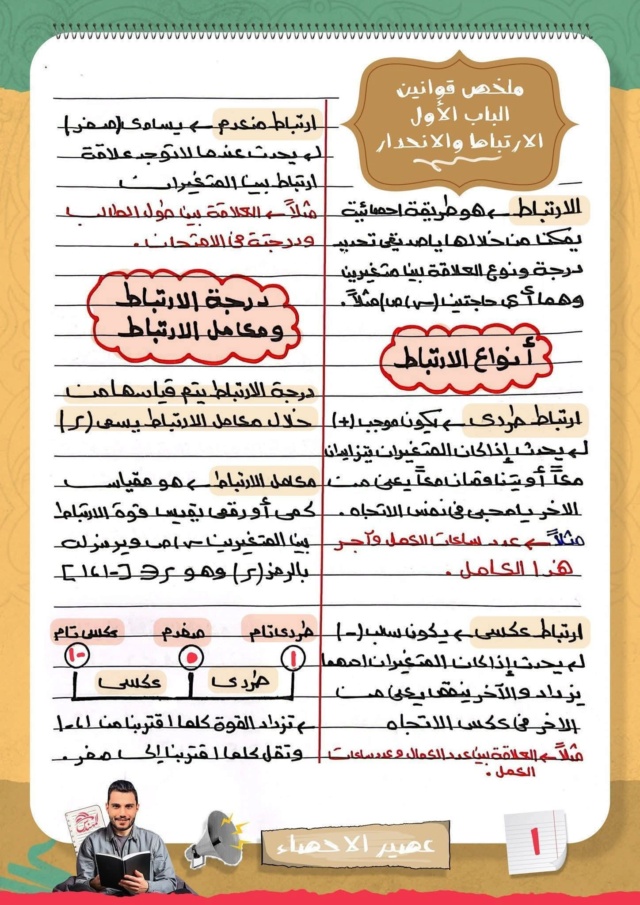 ملخص قوانين
الباب الأول
الارتباط والانحدار
الارتباط ← هو طريقة احصائية
يمكننا من خلالها ياصديقي تحديد
درجة ونوع العلاقة بين متغيرين
وهما أي حاجتين (س، ص) مثلاً.
أنواع الارتباط
ارتباط طردى ← يكون موجب (+)
يحدث إذا كان المتغيران يتزايدان
معاً أو يتناقصان معاً يعنى من
الاخر يا محبى فى نفس الاتجاه.
مثلاً ← عدد ساعات العمل وآجر
هذا العامل.
ارتباط عكسى ← يكون سالب (-)
يحدث إذا كان المتغيران احدهما
يزداد والآخر ينقص يعنى من
الاخر فى عكس الاتجاه
مثلاً ← العلاقة بين عدد العمال وعدد ساعات
العمل.
ارتباط منعدم ← يساوى (صفر)
يحدث عندما لا توجد علاقة
ارتباط بين المتغيرات
مثلاً ← العلاقة بين طول الطالب
ودرجته فى الامتحان.
درجة الارتباط
ومعامل الارتباط
درجة الارتباط يتم قياسها من
خلال معامل الارتباط يسمى (ر)
معامل الارتباط ← هو مقياس
كمى أو رقمى يقيس قوة الارتباط
بين المتغيرين س، ص ويرمز له
بالرمز (ر) وهو ر ∈ [-١،١]
طردى تام منعدم عكسى تام
١ ٠ -١
طردى عكسى
← تزداد القوة كلما اقتربنا من ١، -١
وتقل كلما اقتربنا إلى صفر.
عصير الاحصاء
١